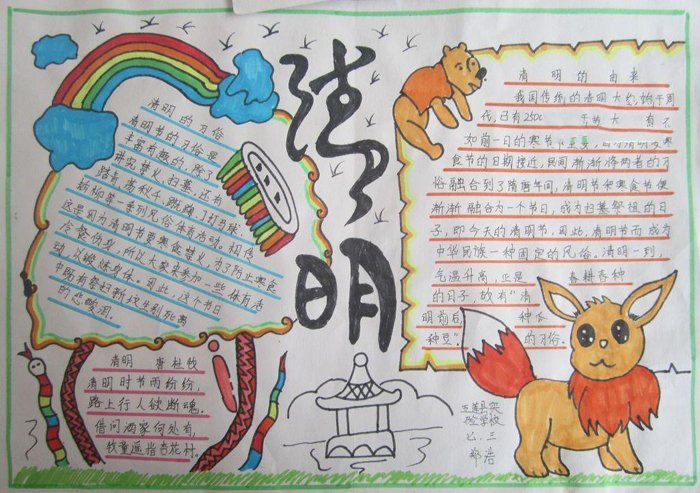 清明
清明的习俗
清明节的习俗是
丰富有趣的，除了
讲究禁火、扫墓，还有
踏青、荡秋千、蹴鞠、打马球、
插柳等一系列风俗体育活动。相传
这是因为清明节要寒食禁火，为了防止寒食
冷餐伤身，所以大家来参加一些体育活
动，以锻炼身体。因此，这个节日
中既有祭扫新坟生别死离
的悲酸泪。
清明 唐 杜牧
清明时节雨纷纷，
路上行人欲断魂。
借问酒家何处有，
牧童遥指杏花村。
清明的由来
我国传统的清明大约始于周
代，已有250
如前一日的寒
食节的日期接近，民间渐渐将两者的习
俗融合到了隋唐年间，清明节和寒食节便
渐渐融合为一个节日，成为扫墓祭祖的日
子，即今天的清明节。因此，清明节而成为
中华民族一种固定的风俗。清明一到，
气温升高，正是 春耕春种
的日子，故有“清
明前后， 种瓜
种豆”。 的习俗。
五莲县实
验学校
七.三
郑浩